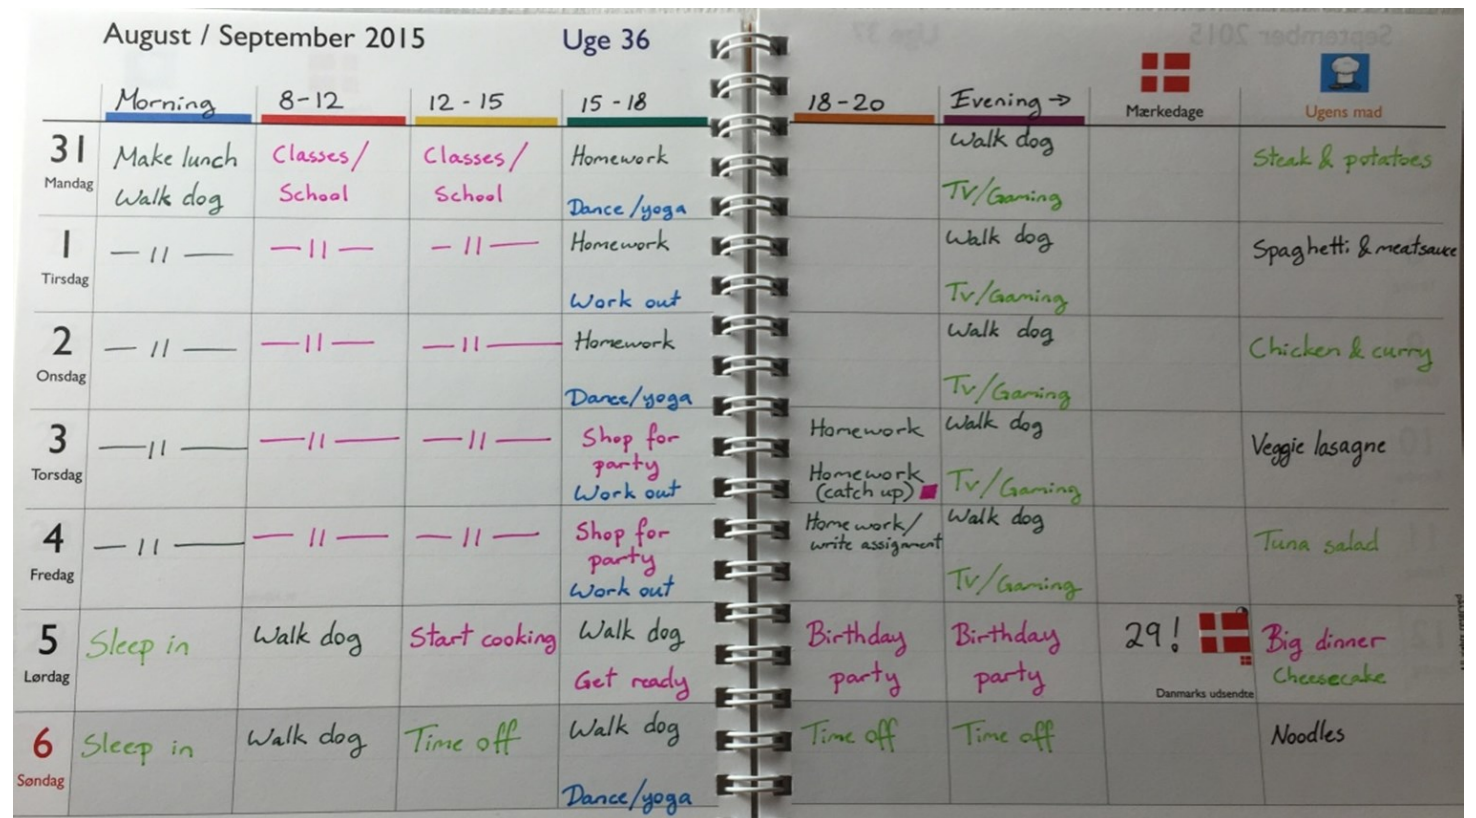 August / September 2015
Uge 36
Morning 8-12 12-15 15-18 18-20 Evening →
Mærkedage Ugens mad
31
Mandag
Make lunch
Walk dog
Classes/
School
Classes/
School
Homework
Dance/yoga
Walk dog
Tv/Gaming
Steak & potatoes
1
Tirsdag
— 11 —
— 11 —
— 11 —
Homework
Work out
Walk dog
Tv/Gaming
Spaghetti & meatsauce
2
Onsdag
— 11 —
— 11 —
— 11 —
Homework
Dance/yoga
Walk dog
Tv/Gaming
Chicken & curry
3
Torsdag
— 11 —
— 11 —
— 11 —
Shop for
party
Work out
Homework
Homework
(catch up)
Walk dog
Tv/Gaming
Veggie lasagne
4
Fredag
— 11 —
— 11 —
— 11 —
Shop for
party
Work out
Homework/
write assignment
Walk dog
Tv/Gaming
Tuna salad
5
Lørdag
Sleep in
Walk dog
Start cooking
Walk dog
Get ready
Birthday
party
Birthday
party
29!
Danmarks udsendte
Big dinner
Cheesecake
6
Søndag
Sleep in
Walk dog
Time off
Walk dog
Dance/yoga
Time off
Time off
Noodles